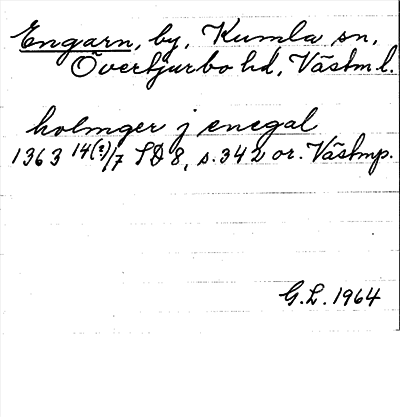 Engarn, by, Kumla sn,
Övertjurbo hd, Västm l.
holmger j enegal
1363 14(?)/7 SD 8, s. 342 or. Västmp.
G.L. 1964